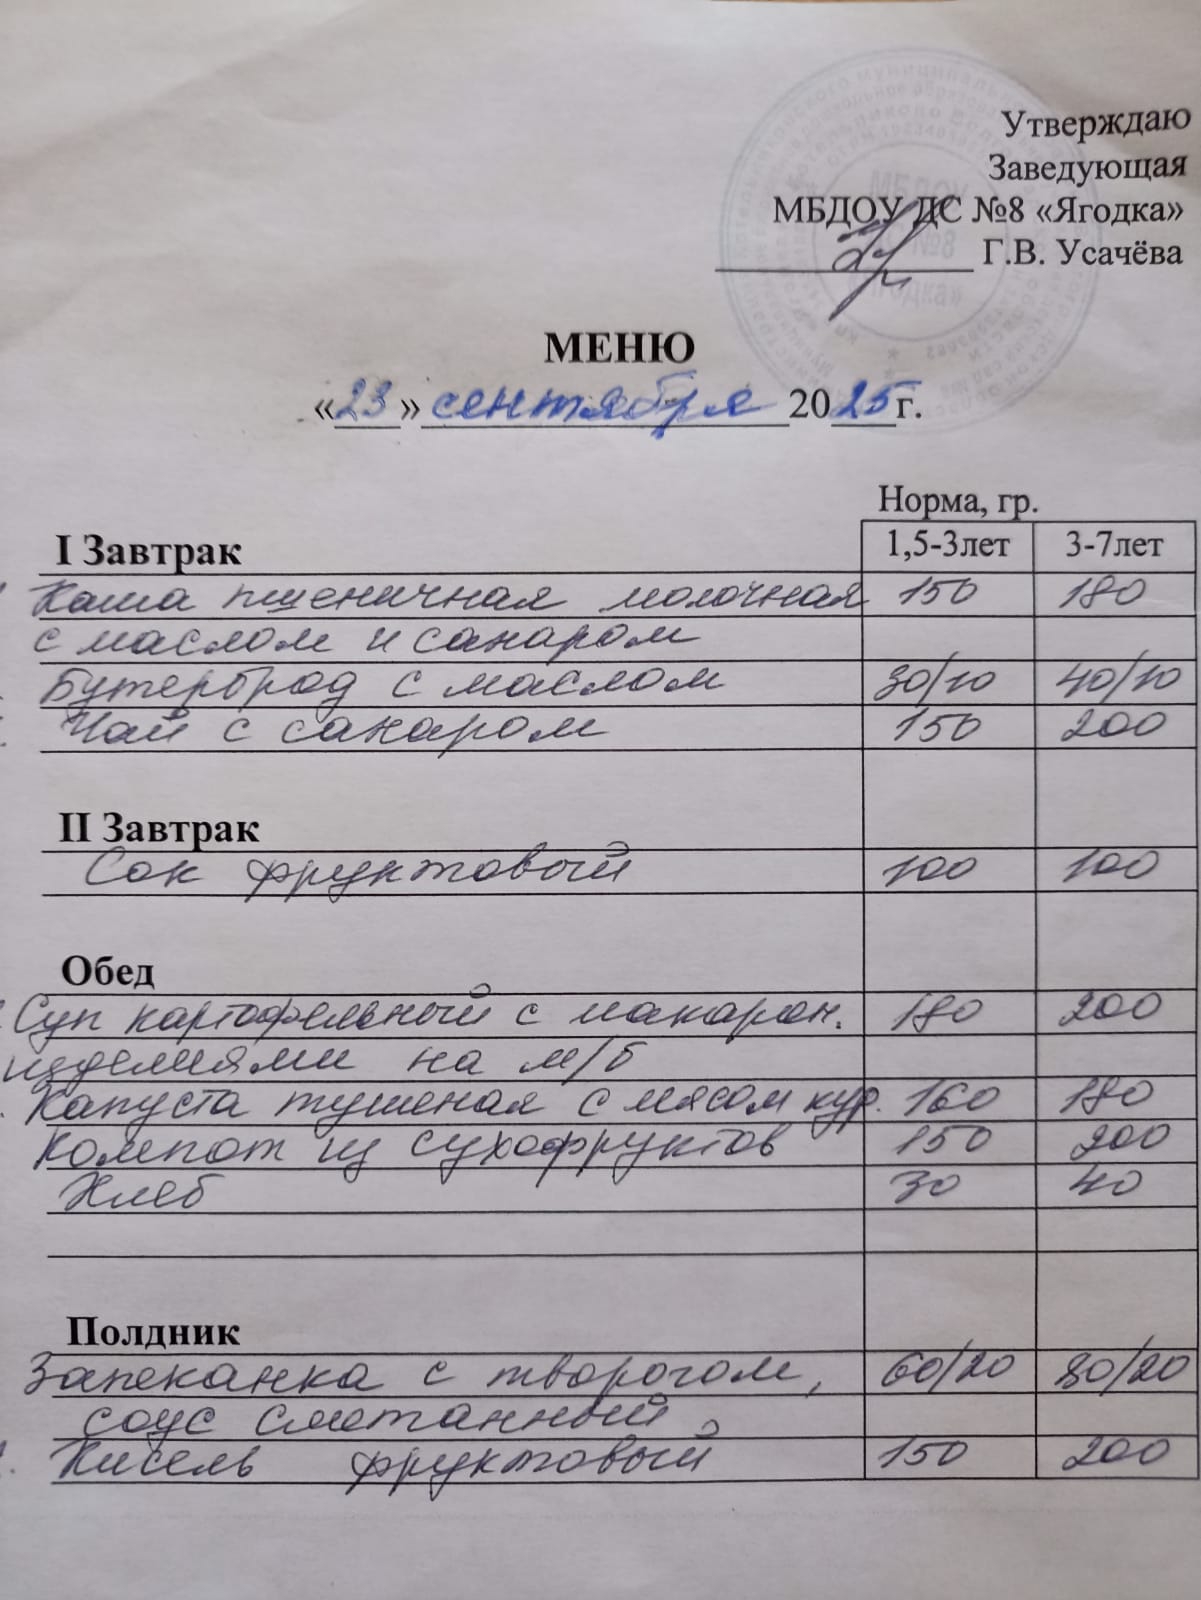 Утверждаю
Заведующая
МБДОУ ДС №8 «Ягодка»
Г.В. Усачёва
МЕНЮ
«23» сентября 2025г.
Норма, гр.
I Завтрак 1,5-3лет 3-7лет
Каша пшеничная молочная 150 180
с маслом и сахаром
Бутерброд с маслом 30/10 40/10
Чай с сахаром 150 200
II Завтрак
Сок фруктовый 100 100
Обед
Суп картофельный с макарон. 180 200
изделиями на м/б
Капуста тушеная с мясом кур. 160 180
Компот из сухофруктов 150 200
Хлеб 30 40
Полдник
Запеканка с творогом, 60/20 80/20
соус сметанный
Кисель фруктовый 150 200